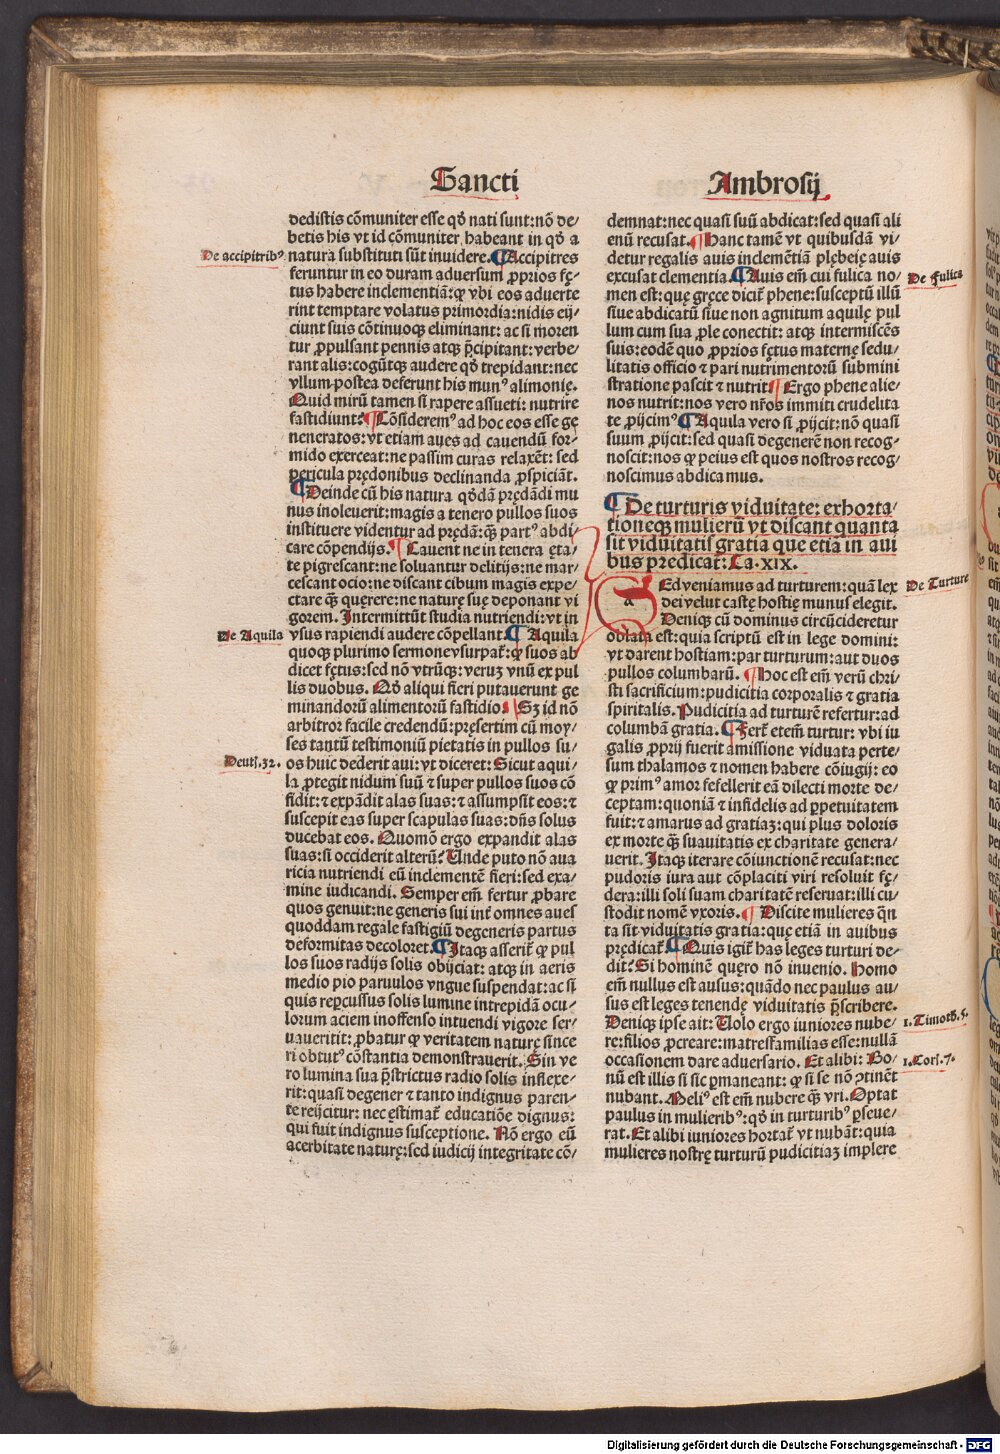 Sancti
dedistis cõmuniter esse qđ nati sunt: nõ de/
betis his vt id cõmuniter habeant in qđ a
De accipitribꝰ
natura substituti sũt inuidere. ¶ Accipitres
feruntur in eo duram aduersum ꝓprios fę/
tus habere inclementiã: ꝙ vbi eos aduerte
rint temptare volatus primordia: nidis eij/
ciunt suis cõtinuoqꝫ eliminant: ac si moren
tur ꝓpulsant pennis atqꝫ p̃cipitant: verbe/
rant alis: cogũtqꝫ audere qđ trepidant: nec
vllum postea deferunt his munꝰ alimonię.
Quid mirũ tamen si rapere assueti: nutrire
fastidiunt? ¶ Cõsideremꝰ ad hoc eos esse ge
neneratos: vt etiam aues ad cauendũ for/
mido exerceat: ne passim curas relaxẽt: sed
pericula prędonibus declinanda ꝓspiciãt.
¶ Deinde cũ his natura qđã prędãdi mu
nus inoleuerit: magis a tenero pullos suos
instituere videntur ad prędã: q̃ꝫ partꝰ abdi/
care cõpendijs. ¶ Cauent ne in tenera ęta/
te pigrescant: ne soluantur delitijs: ne mar/
cescant ocio: ne discant cibum magis expe/
ctare q̃ꝫ quęrere: ne naturę suę deponant vi
gorem. Intermittũt studia nutriendi: vt in
De Aquila
vsus rapiendi audere cõpellant. ¶ Aquila
quoqꝫ plurimo sermone vsurpat̃: ꝙ suos ab
dicet fętus: sed nõ vtrũqꝫ: veruꝫ vnũ ex pul
lis duobus. Qđ aliqui fieri putauerunt ge
minandorũ alimentorũ fastidio. ¶ Sꝫ id nõ
arbitror facile credendũ: pręsertim cũ moy/
ses tantũ testimoniũ pietatis in pullos su/
Deutȩ.32.
os huic dederit aui: vt diceret: Sicut aqui/
la ꝓtegit nidum suũ ⁊ super pullos suos cõ
fidit: ⁊ expãdit alas suas: ⁊ assumpsit eos: ⁊
suscepit eas super scapulas suas: dñs solus
ducebat eos. Quomõ ergo expandit alas
suas: si occiderit alterũ? Unde puto nõ aua
ricia nutriendi eũ inclementẽ fieri: sed exa/
mine iudicandi. Semper em̃ fertur ꝓbare
quos genuit: ne generis sui int̃ omnes aues
quoddam regale fastigiũ degeneris partus
deformitas decoloret. ¶ Itaqꝫ asserit̃ ꝙ pul
los suos radijs solis obijciat: atqꝫ in aeris
medio pio paruulos vngue suspendat: ac si
quis repcussus solis lumine intrepidã ocu/
lorum aciem inoffenso intuendi vigore ser/
uauerit̃: ꝓbatur ꝙ veritatem naturę since
ri obtutꝰ cõstantia demonstrauerit. Sin ve
ro lumina sua p̃strictus radio solis inflexe/
rit: quasi degener ⁊ tanto indignus paren/
te reijcitur: nec ęstimat̃ educatiõe dignus:
qui fuit indignus susceptione. Nõ ergo eũ
acerbitate naturę: sed iudicij integritate cõ/
Ambrosij
demnat: nec quasi suũ abdicat: sed quasi ali
enũ recusat. ¶ Hanc tamẽ vt quibusdã vi/
detur regalis auis inclemẽtiã plębeię auis
De fulica
excusat clementia. ¶ Auis em̃ cui fulica no/
men est: quę gręce dicit̃ phene: susceptũ illũ
siue abdicatũ siue non agnitum aquilę pul
lum cum sua ꝓle conectit: atqꝫ intermiscẽs
suis: eodẽ quo ꝓprios fętus maternę sedu/
litatis officio ⁊ pari nutrimentorũ submini
stratione pascit ⁊ nutrit. ¶ Ergo phene alie/
nos nutrit: nos vero nr̃os immiti crudelita
te ꝓijcimꝰ. ¶ Aquila vero si ꝓijcit: nõ quasi
suum ꝓijcit: sed quasi degenerẽ non recog/
noscit: nos ꝙ peius est quos nostros recog/
noscimus abdicamus.
¶ De turturis viduitate: exhorta/
tioneqꝫ mulierũ vt discant quanta
sit viduitatis gratia que etiã in aui
bus predicat: Ca. xix.
De Turture
Sed veniamus ad turturem: quã lex
dei velut castę hostię munus elegit.
Deniqꝫ cũ dominus circũcideretur
oblata est: quia scriptũ est in lege domini:
vt darent hostiam: par turturum: aut duos
pullos columbarũ. ¶ Hoc est em̃ verũ chri/
sti sacrificium: pudicitia corporalis ⁊ gratia
spiritalis. Pudicitia ad turturẽ refertur: ad
columbã gratia. ¶ Fert̃ etem̃ turtur: vbi iu
galis ꝓprij fuerit amissione viduata perte/
sum thalamos ⁊ nomen habere cõiugij: eo
ꝙ primꝰ amor fefellerit eã dilecti morte de/
ceptam: quoniã ⁊ infidelis ad ꝑpetuitatem
fuit: ⁊ amarus ad gratiaꝫ: qui plus doloris
ex morte q̃ꝫ suauitatis ex charitate genera/
uerit. Itaqꝫ iterare cõiunctionẽ recusat: nec
pudoris iura aut cõplaciti viri resoluit fę/
dera: illi soli suam charitatẽ reseruat: illi cu/
stodit nomẽ vxoris. ¶ Discite mulieres q̃n
ta sit viduitatis gratia: quę etiã in auibus
prędicat̃. ¶ Quis igit̃ has leges turturi de/
dit? Si hominẽ quęro nõ inuenio. Homo
em̃ nullus est ausus: quãdo nec paulus au/
sus est leges tenendę viduitatis p̃scribere.
1. Timoth̃. 5.
Deniqꝫ ipse ait: Uolo ergo iuniores nube/
re: filios ꝓcreare: matresfamilias esse: nullã
1. Corȩ. 7.
occasionem dare aduersario. Et alibi: Bo/
nũ est illis si sic ꝑmaneant: ꝙ si se nõ ↄtinẽt
nubant. Meliꝰ est em̃ nubere q̃ꝫ vri. Optat
paulus in mulieribꝰ: qđ in turturibꝰ ꝑseue/
rat. Et alibi iuniores hortat̃ vt nubãt: quia
mulieres nostrę turturũ pudicitiaꝫ implere
Digitalisierung gefördert durch die Deutsche Forschungsgemeinschaft - DFG